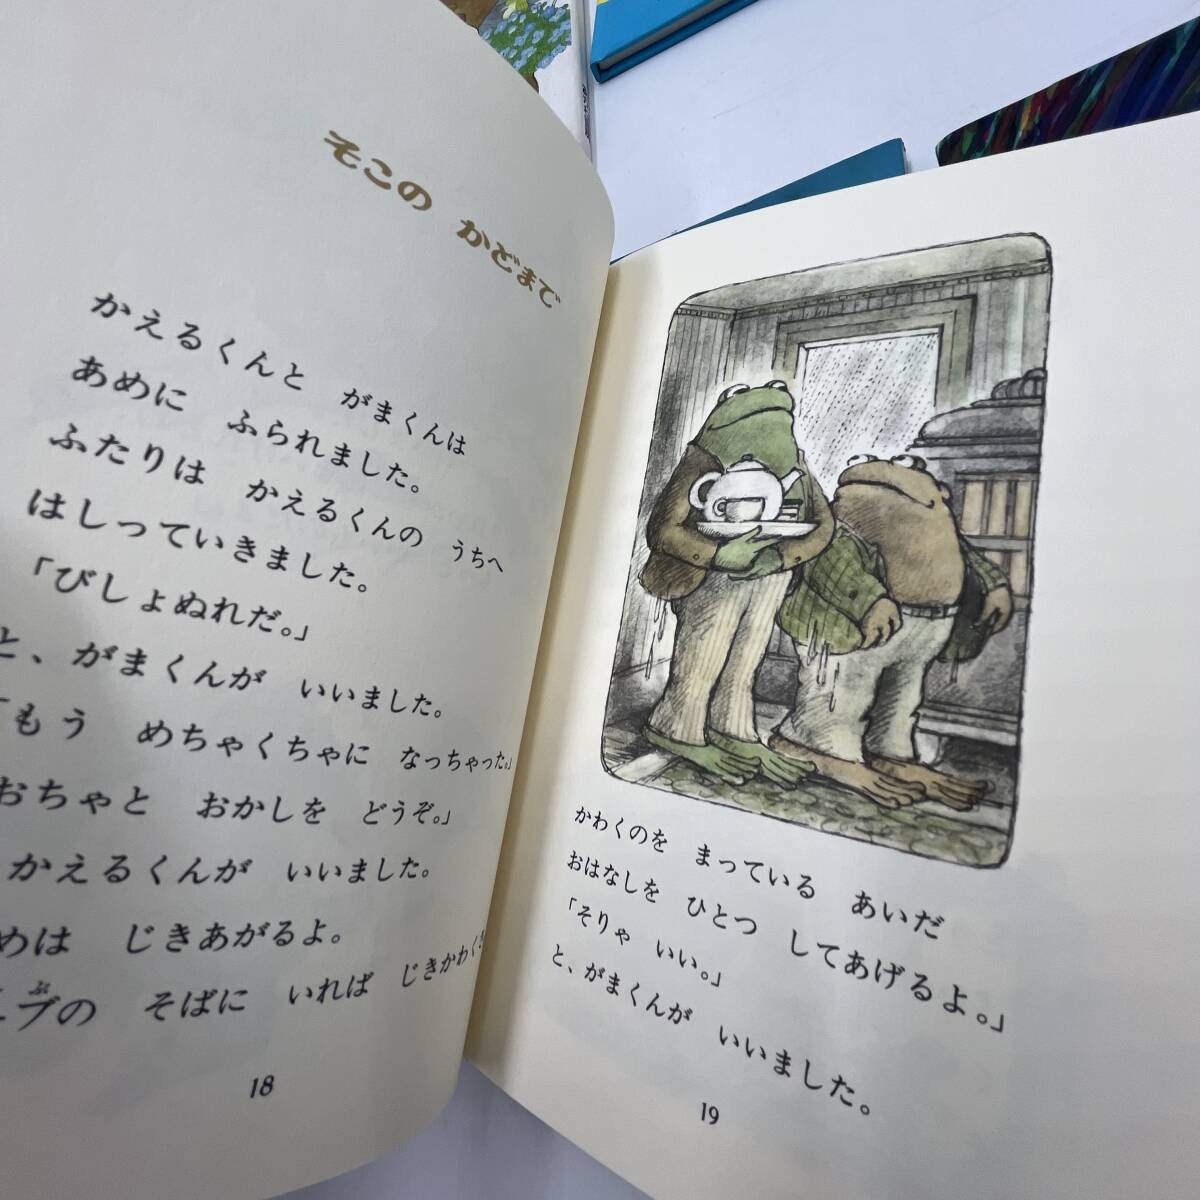 そこの かどまで
かえるくんと がまくんは
あめに ふられました。
ふたりは かえるくんの うちへ
はしっていきました。
「びしょぬれだ。」
と、がまくんが いいました。
「もう めちゃくちゃに なっちゃった。」
おちゃと おかしを どうぞ。」
かえるくんが いいました。
めは じきあがるよ。
ブの そばに いれば じきかわくさ
ぶ
18
かわくのを まっている あいだ
おはなしを ひとつ してあげるよ。」
「そりゃ いい。」
と、がまくんが いいました。
19